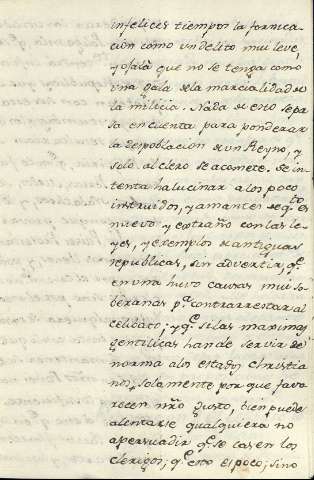 infelices tiempos la fornica-
cion como un delito mui leve,
y ojala que no se tenga como
una gala de la marcialidad de
la milicia. Nada de esto se pa-
sa en cuenta para ponderar
la despoblacion de un Reyno, y
solo al clero se acomete. Se in-
tenta halucinar a los poco
instruidos, y amantes de q.to es
nuevo y extraño con las le-
yes, y exemplos de antiguas
republicas, sin advertir, q.e
en una huvo causas mui so-
beranas p.a contrarrestar al
celibato; y q.e si las maximas
gentilicas han de servir de
norma a los estados christia-
nos, solamente por que favo-
recen nřo gusto, bien puede
alentarse qualquiera no
a persuadir q.e se casen los
clerigos, q.e esto es poco; sino